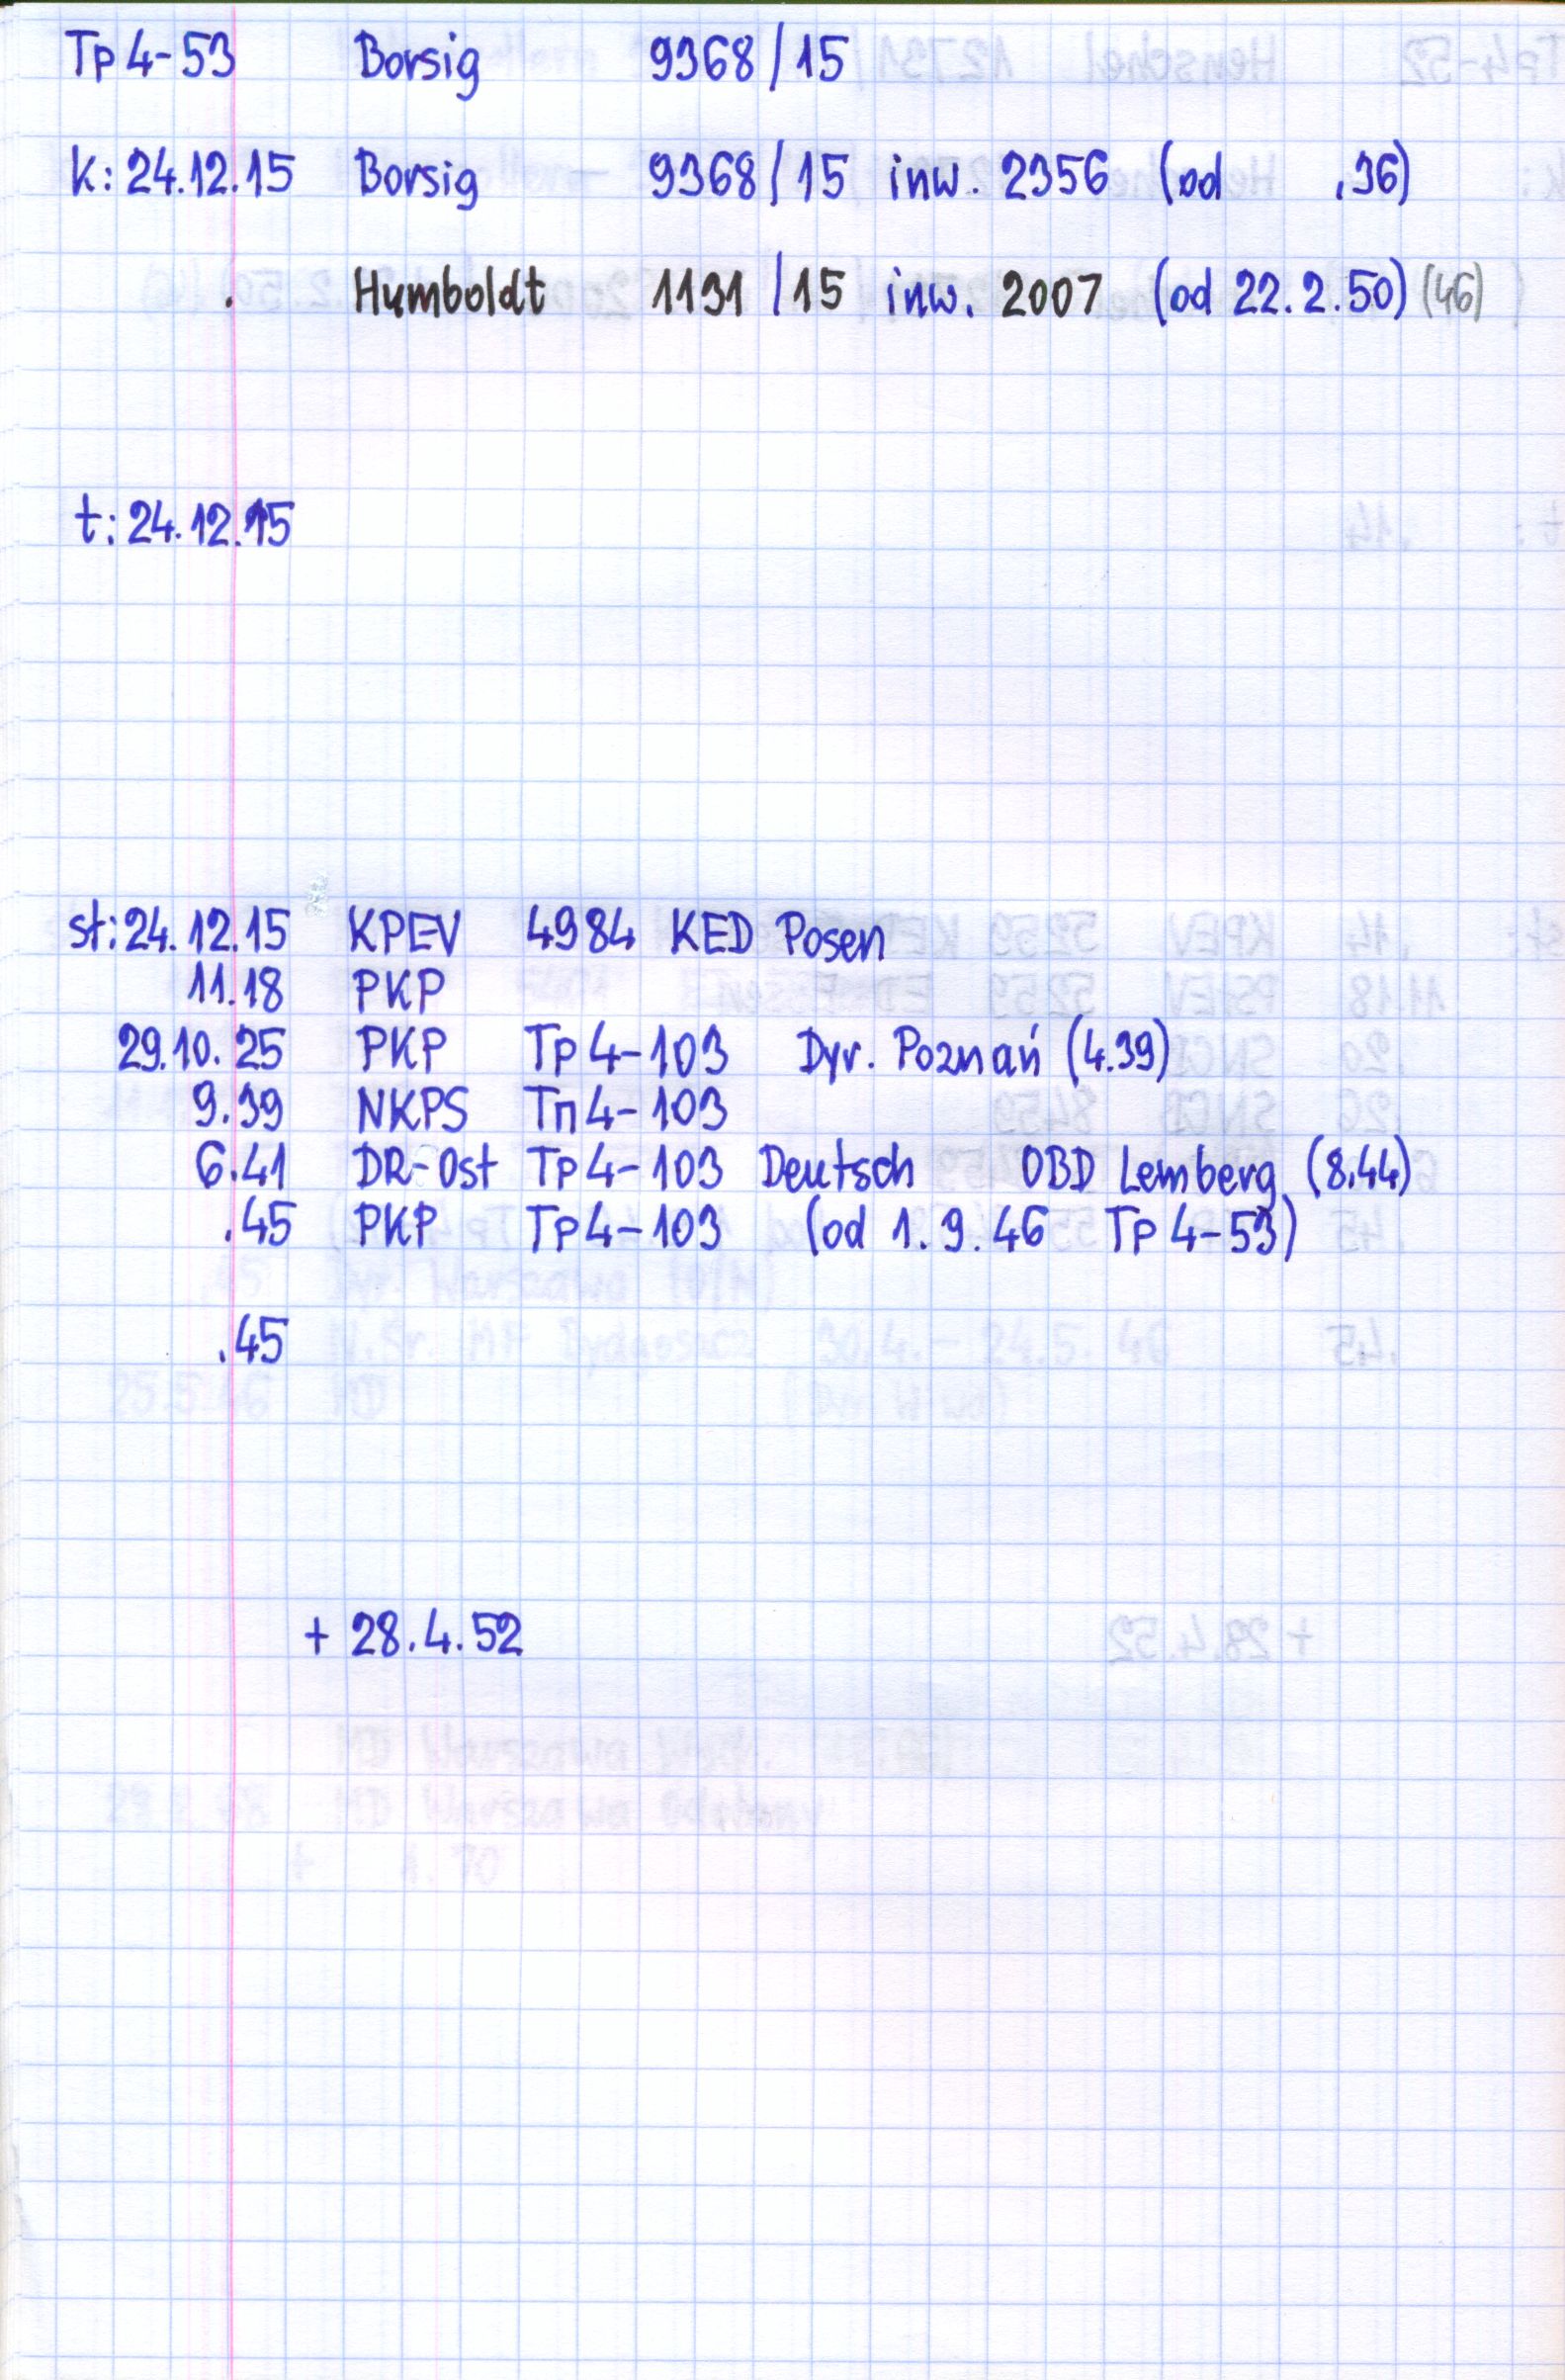 Tp 4-53 Borsig 9368/15
k: 24.12.15 Borsig 9368/15 inw. 2356 (od .36)
. Humboldt 1131/15 inw. 2007 (od 22.2.50) (46)
t: 24.12.15
st: 24.12.15 KPEV 4984 KED Posen
11.18 PKP
29.10.25 PKP Tp 4-103 Dyr. Poznań (4.39)
9.39 NKPS Тп 4-103
6.41 DR-Ost Tp 4-103 Deutsch OBD Lemberg (8.44)
.45 PKP Tp 4-103 (od 1.9.46 Tp 4-53)
.45
+ 28.4.52